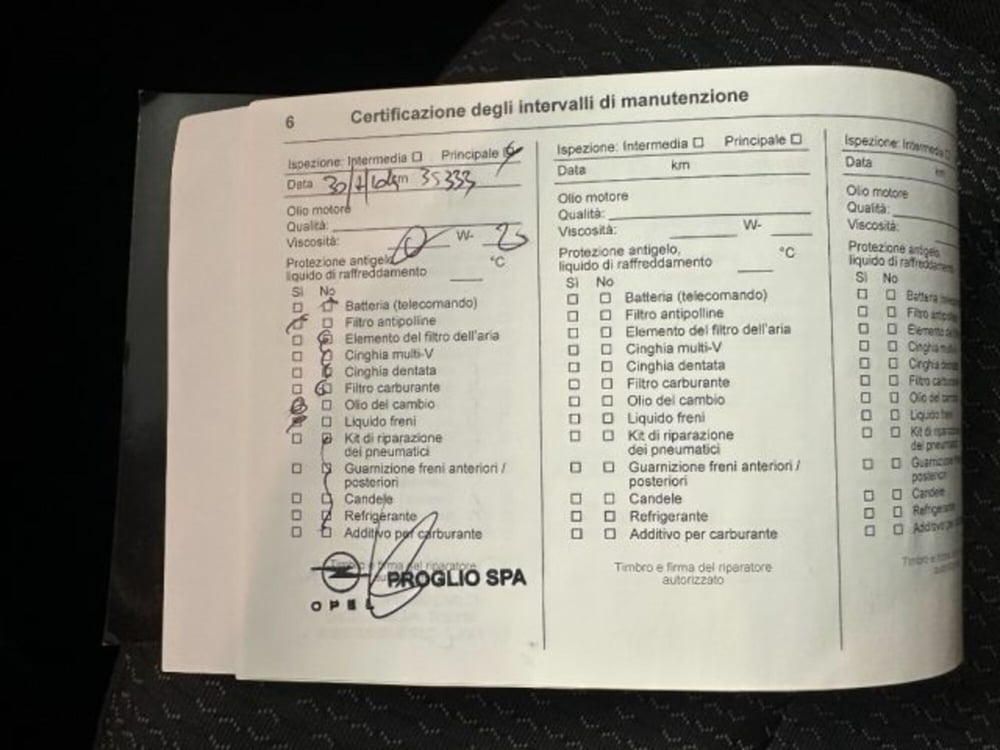 6 Certificazione degli intervalli di manutenzione
Ispezione: Intermedia ☐ Principale
Data km 35333
Olio motore
Qualità:
Viscosità: W-
Protezione antigelo, °C
liquido di raffreddamento
Sì No
Batteria (telecomando)
Filtro antipolline
Elemento del filtro dell'aria
Cinghia multi-V
Cinghia dentata
Filtro carburante
Olio del cambio
Liquido freni
Kit di riparazione
dei pneumatici
Guarnizione freni anteriori /
posteriori
Candele
Refrigerante
Additivo per carburante
Timbro e firma del riparatore
PROGLIO SPA
OPEL
Ispezione: Intermedia ☐ Principale ☐
Data km
Olio motore
Qualità:
Viscosità: W-
Protezione antigelo, °C
liquido di raffreddamento
Sì No
☐ ☐ Batteria (telecomando)
☐ ☐ Filtro antipolline
☐ ☐ Elemento del filtro dell'aria
☐ ☐ Cinghia multi-V
☐ ☐ Cinghia dentata
☐ ☐ Filtro carburante
☐ ☐ Olio del cambio
☐ ☐ Liquido freni
☐ ☐ Kit di riparazione
dei pneumatici
☐ ☐ Guarnizione freni anteriori /
posteriori
☐ ☐ Candele
☐ ☐ Refrigerante
☐ ☐ Additivo per carburante
Timbro e firma del riparatore
autorizzato
Ispezione: Intermedia ☐
Data km
Olio motore
Qualità:
Viscosità:
Protezione antigelo,
liquido di raffreddamento
Sì No
☐ ☐ Batteria
☐ ☐ Filtro antipolline
☐ ☐ Elemento del
☐ ☐ Cinghia
☐ ☐ Cinghia
☐ ☐ Filtro
☐ ☐ Olio del
☐ ☐ Liquido freni
☐ ☐ Kit di
dei pneumatici
☐ ☐ Guarnizione
posteriori
☐ ☐ Candele
☐ ☐ Refrigerante
☐ ☐ Additivo per
Timbro e firma